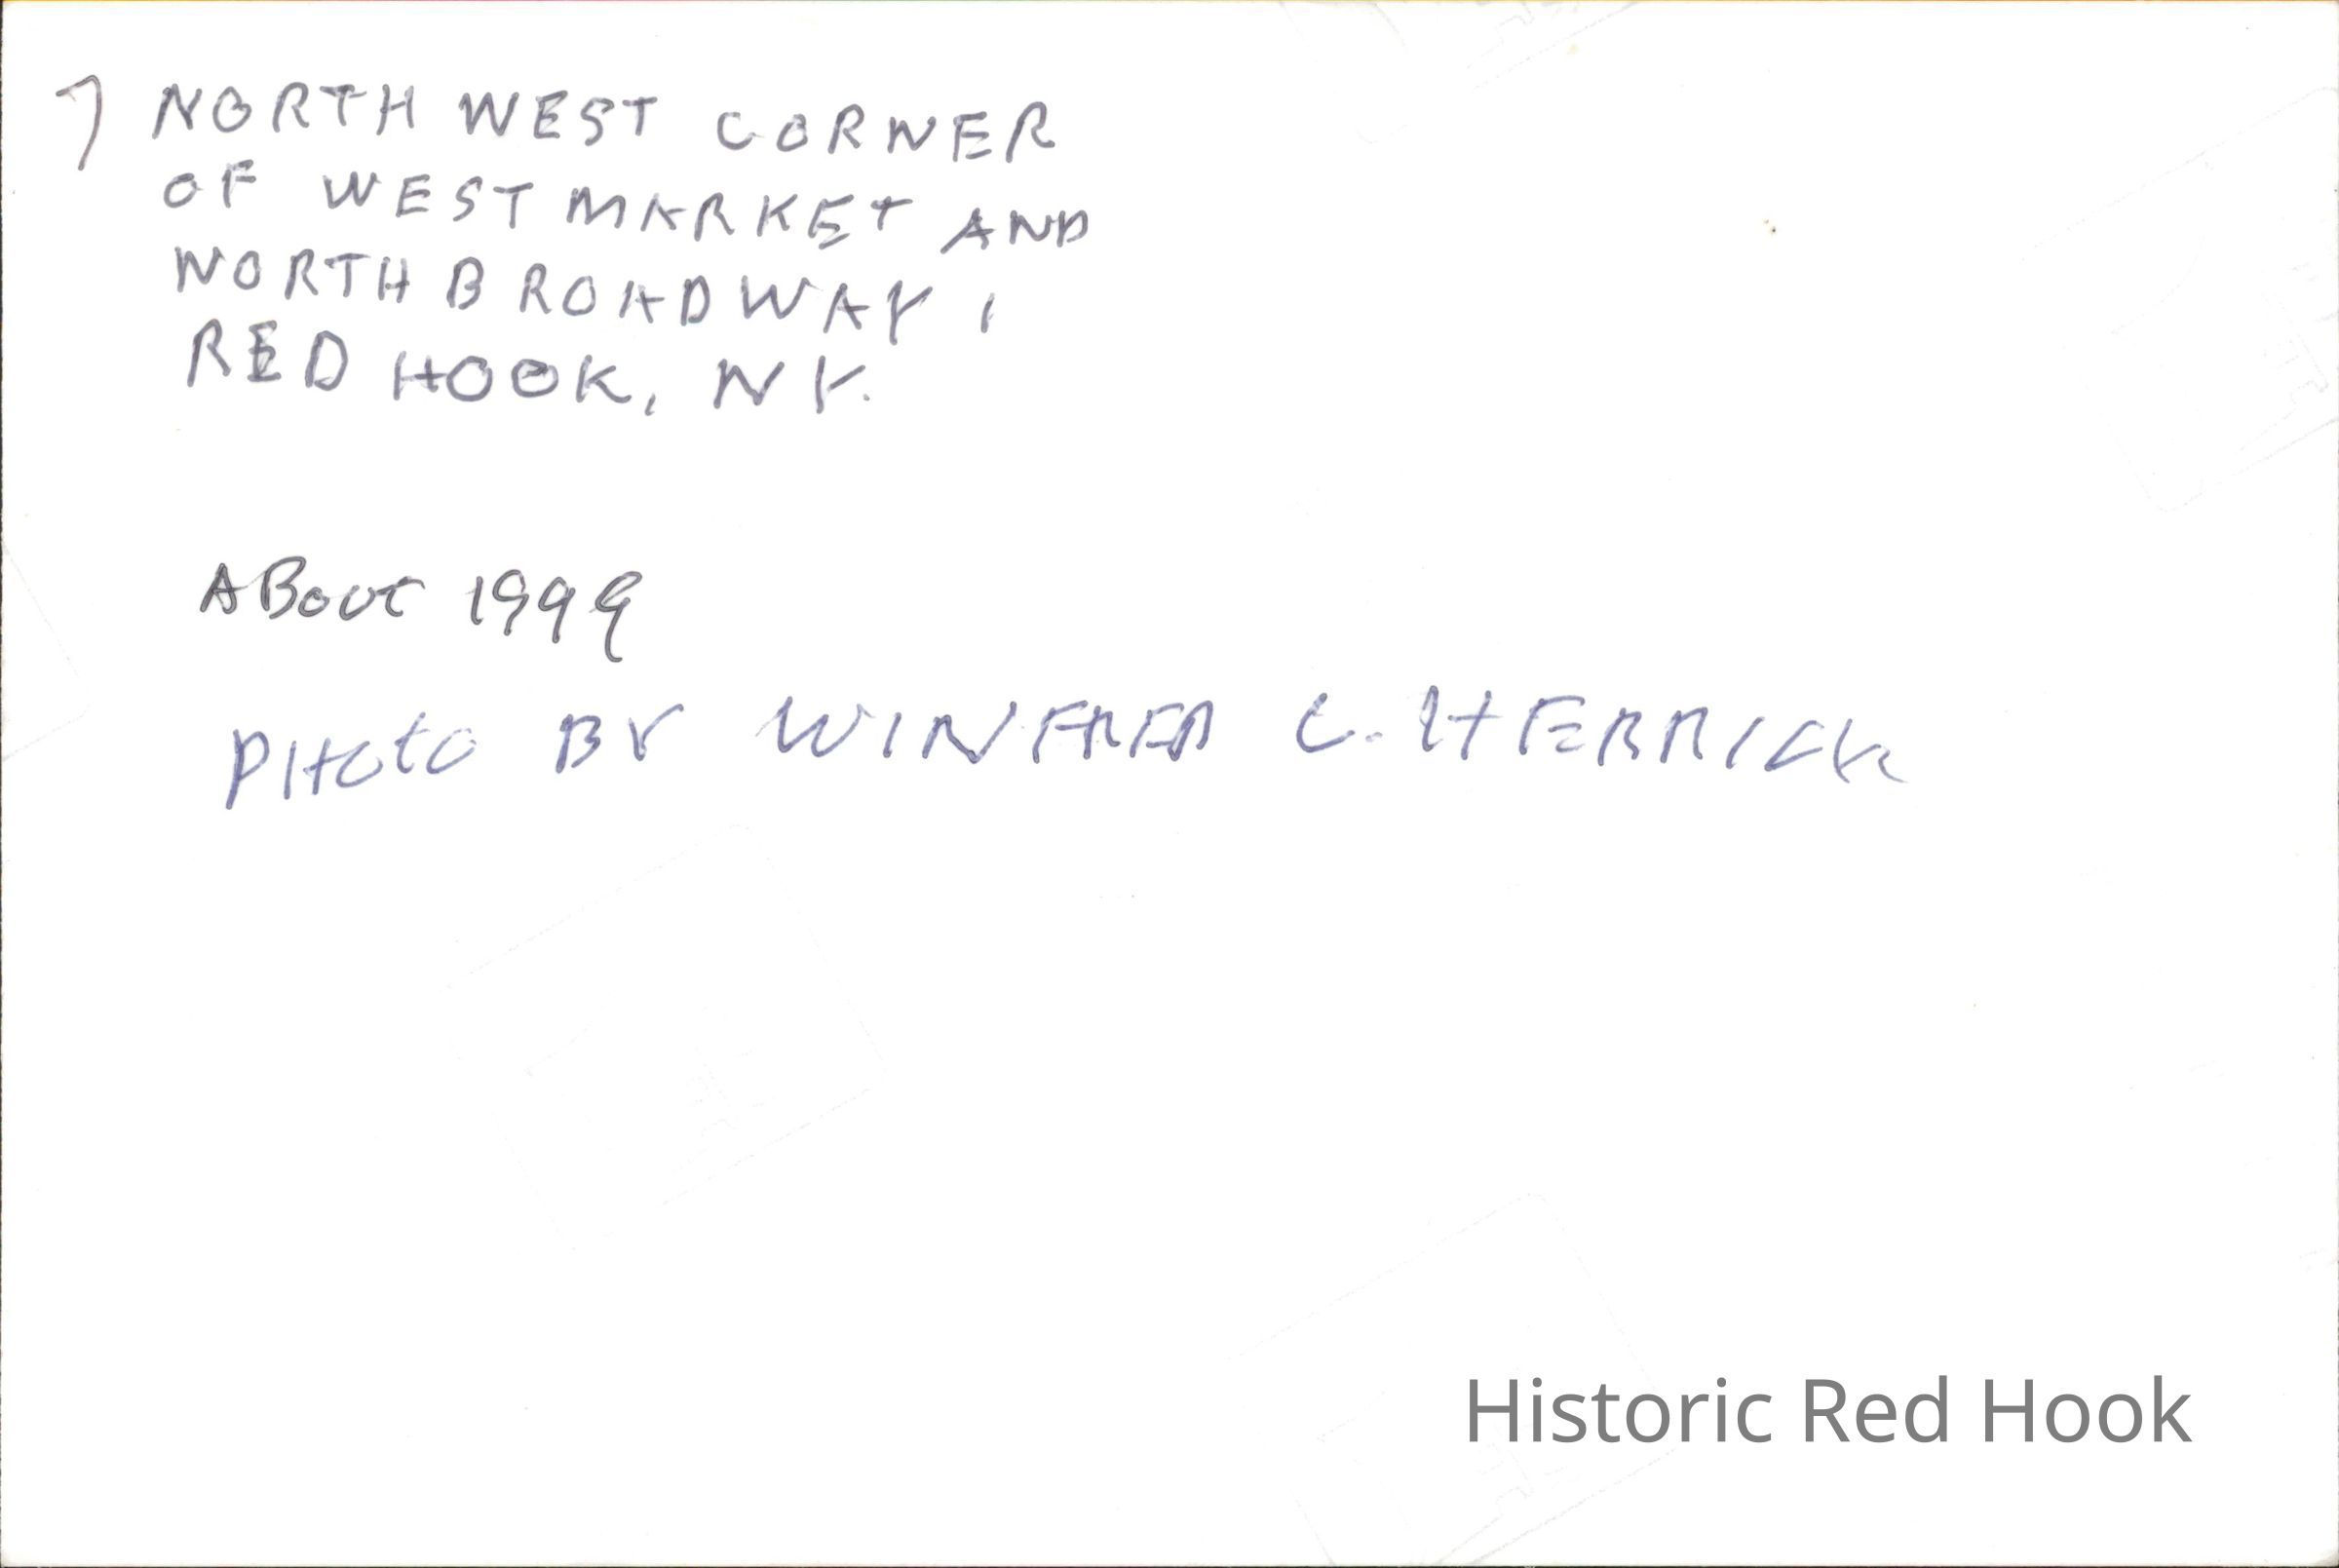 7) NORTH WEST CORNER
OF WEST MARKET AND
NORTH BROADWAY,
RED HOOK, NY.
ABOUT 1999
PHOTO BY WINFRED C. HERRICK
Historic Red Hook